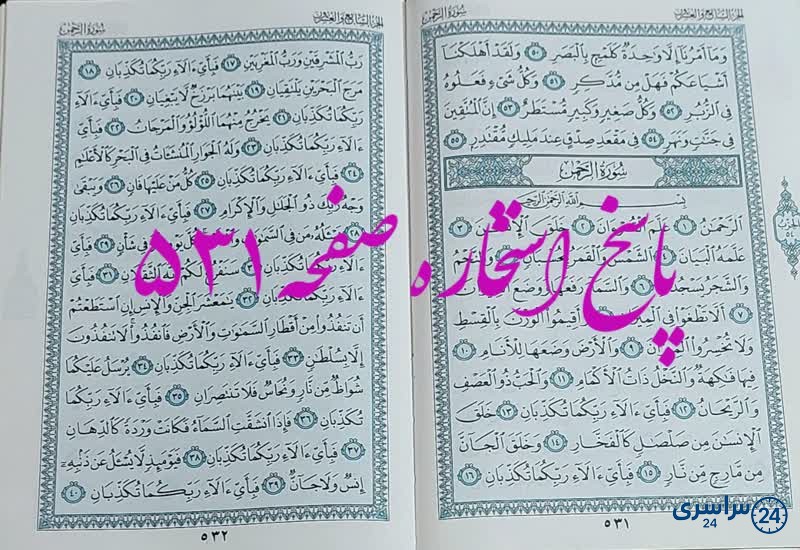 سُورَةُ الرَّحْمٰن
الجزء السابع والعشرون
وَمَآ أَمْرُنَآ إِلَّا وَٰحِدَةٌ كَلَمْحٍۭ بِٱلْبَصَرِ ٥٠ وَلَقَدْ أَهْلَكْنَآ
أَشْيَاعَكُمْ فَهَلْ مِن مُّدَّكِرٍ ٥١ وَكُلُّ شَىْءٍ فَعَلُوهُ
فِى ٱلزُّبُرِ ٥٢ وَكُلُّ صَغِيرٍ وَكَبِيرٍ مُّسْتَطَرٌ ٥٣ إِنَّ ٱلْمُتَّقِينَ
فِى جَنَّٰتٍ وَنَهَرٍ ٥٤ فِى مَقْعَدِ صِدْقٍ عِندَ مَلِيكٍ مُّقْتَدِرٍۭ ٥٥
سُورَةُ الرَّحْمٰن
بِسْمِ ٱللَّهِ ٱلرَّحْمَٰنِ ٱلرَّحِيمِ
ٱلرَّحْمَٰنُ ١ عَلَّمَ ٱلْقُرْءَانَ ٢ خَلَقَ ٱلْإِنسَٰنَ ٣
عَلَّمَهُ ٱلْبَيَانَ ٤ ٱلشَّمْسُ وَٱلْقَمَرُ بِحُسْبَانٍ ٥ وَٱلنَّجْمُ
وَٱلشَّجَرُ يَسْجُدَانِ ٦ وَٱلسَّمَآءَ رَفَعَهَا وَوَضَعَ ٱلْمِيزَانَ
٧ أَلَّا تَطْغَوْا۟ فِى ٱلْمِيزَانِ ٨ وَأَقِيمُوا۟ ٱلْوَزْنَ بِٱلْقِسْطِ
وَلَا تُخْسِرُوا۟ ٱلْمِيزَانَ ٩ وَٱلْأَرْضَ وَضَعَهَا لِلْأَنَامِ ١٠
فِيهَا فَٰكِهَةٌ وَٱلنَّخْلُ ذَاتُ ٱلْأَكْمَامِ ١١ وَٱلْحَبُّ ذُو ٱلْعَصْفِ
وَٱلرَّيْحَانُ ١٢ فَبِأَىِّ ءَالَآءِ رَبِّكُمَا تُكَذِّبَانِ ١٣ خَلَقَ
ٱلْإِنسَٰنَ مِن صَلْصَٰلٍ كَٱلْفَخَّارِ ١٤ وَخَلَقَ ٱلْجَآنَّ
مِن مَّارِجٍ مِّن نَّارٍ ١٥ فَبِأَىِّ ءَالَآءِ رَبِّكُمَا تُكَذِّبَانِ ١٦
٥٣١
سُورَةُ الرَّحْمٰن
الجزء السابع والعشرون
رَبُّ ٱلْمَشْرِقَيْنِ وَرَبُّ ٱلْمَغْرِبَيْنِ ١٧ فَبِأَىِّ ءَالَآءِ رَبِّكُمَا تُكَذِّبَانِ ١٨
مَرَجَ ٱلْبَحْرَيْنِ يَلْتَقِيَانِ ١٩ بَيْنَهُمَا بَرْزَخٌ لَّا يَبْغِيَانِ ٢٠ فَبِأَىِّ ءَالَآءِ
رَبِّكُمَا تُكَذِّبَانِ ٢١ يَخْرُجُ مِنْهُمَا ٱللُّؤْلُؤُ وَٱلْمَرْجَانُ ٢٢ فَبِأَىِّ
ءَالَآءِ رَبِّكُمَا تُكَذِّبَانِ ٢٣ وَلَهُ ٱلْجَوَارِ ٱلْمُنشَـَٔاتُ فِى ٱلْبَحْرِ كَٱلْأَعْلَٰمِ
٢٤ فَبِأَىِّ ءَالَآءِ رَبِّكُمَا تُكَذِّبَانِ ٢٥ كُلُّ مَنْ عَلَيْهَا فَانٍ ٢٦ وَيَبْقَىٰ
وَجْهُ رَبِّكَ ذُو ٱلْجَلَٰلِ وَٱلْإِكْرَامِ ٢٧ فَبِأَىِّ ءَالَآءِ رَبِّكُمَا تُكَذِّبَانِ
٢٨ يَسْـَٔلُهُۥ مَن فِى ٱلسَّمَٰوَٰتِ كُلَّ يَوْمٍ هُوَ فِى شَأْنٍ ٢٩ فَبِأَىِّ
ءَالَآءِ رَبِّكُمَا تُكَذِّبَانِ ٣٠ سَنَفْرُغُ لَكُمْ أَيُّهَ ٱلثَّقَلَانِ ٣١ فَبِأَىِّ
ءَالَآءِ رَبِّكُمَا تُكَذِّبَانِ ٣٢ يَٰمَعْشَرَ ٱلْجِنِّ وَٱلْإِنسِ إِنِ ٱسْتَطَعْتُمْ
أَن تَنفُذُوا۟ مِنْ أَقْطَارِ ٱلسَّمَٰوَٰتِ وَٱلْأَرْضِ فَٱنفُذُوا۟ لَا تَنفُذُونَ
إِلَّا بِسُلْطَٰنٍ ٣٣ فَبِأَىِّ ءَالَآءِ رَبِّكُمَا تُكَذِّبَانِ ٣٤ يُرْسَلُ عَلَيْكُمَا
شُوَاظٌ مِّن نَّارٍ وَنُحَاسٌ فَلَا تَنتَصِرَانِ ٣٥ فَبِأَىِّ ءَالَآءِ رَبِّكُمَا
تُكَذِّبَانِ ٣٦ فَإِذَا ٱنشَقَّتِ ٱلسَّمَآءُ فَكَانَتْ وَرْدَةً كَٱلدِّهَانِ
٣٧ فَبِأَىِّ ءَالَآءِ رَبِّكُمَا تُكَذِّبَانِ ٣٨ فَيَوْمَئِذٍ لَّا يُسْـَٔلُ عَن ذَنۢبِهِۦٓ
إِنسٌ وَلَا جَآنٌّ ٣٩ فَبِأَىِّ ءَالَآءِ رَبِّكُمَا تُكَذِّبَانِ ٤٠
٥٣٢
پاسخ استخاره صفحه ۵۳۱
سراسری
24
24